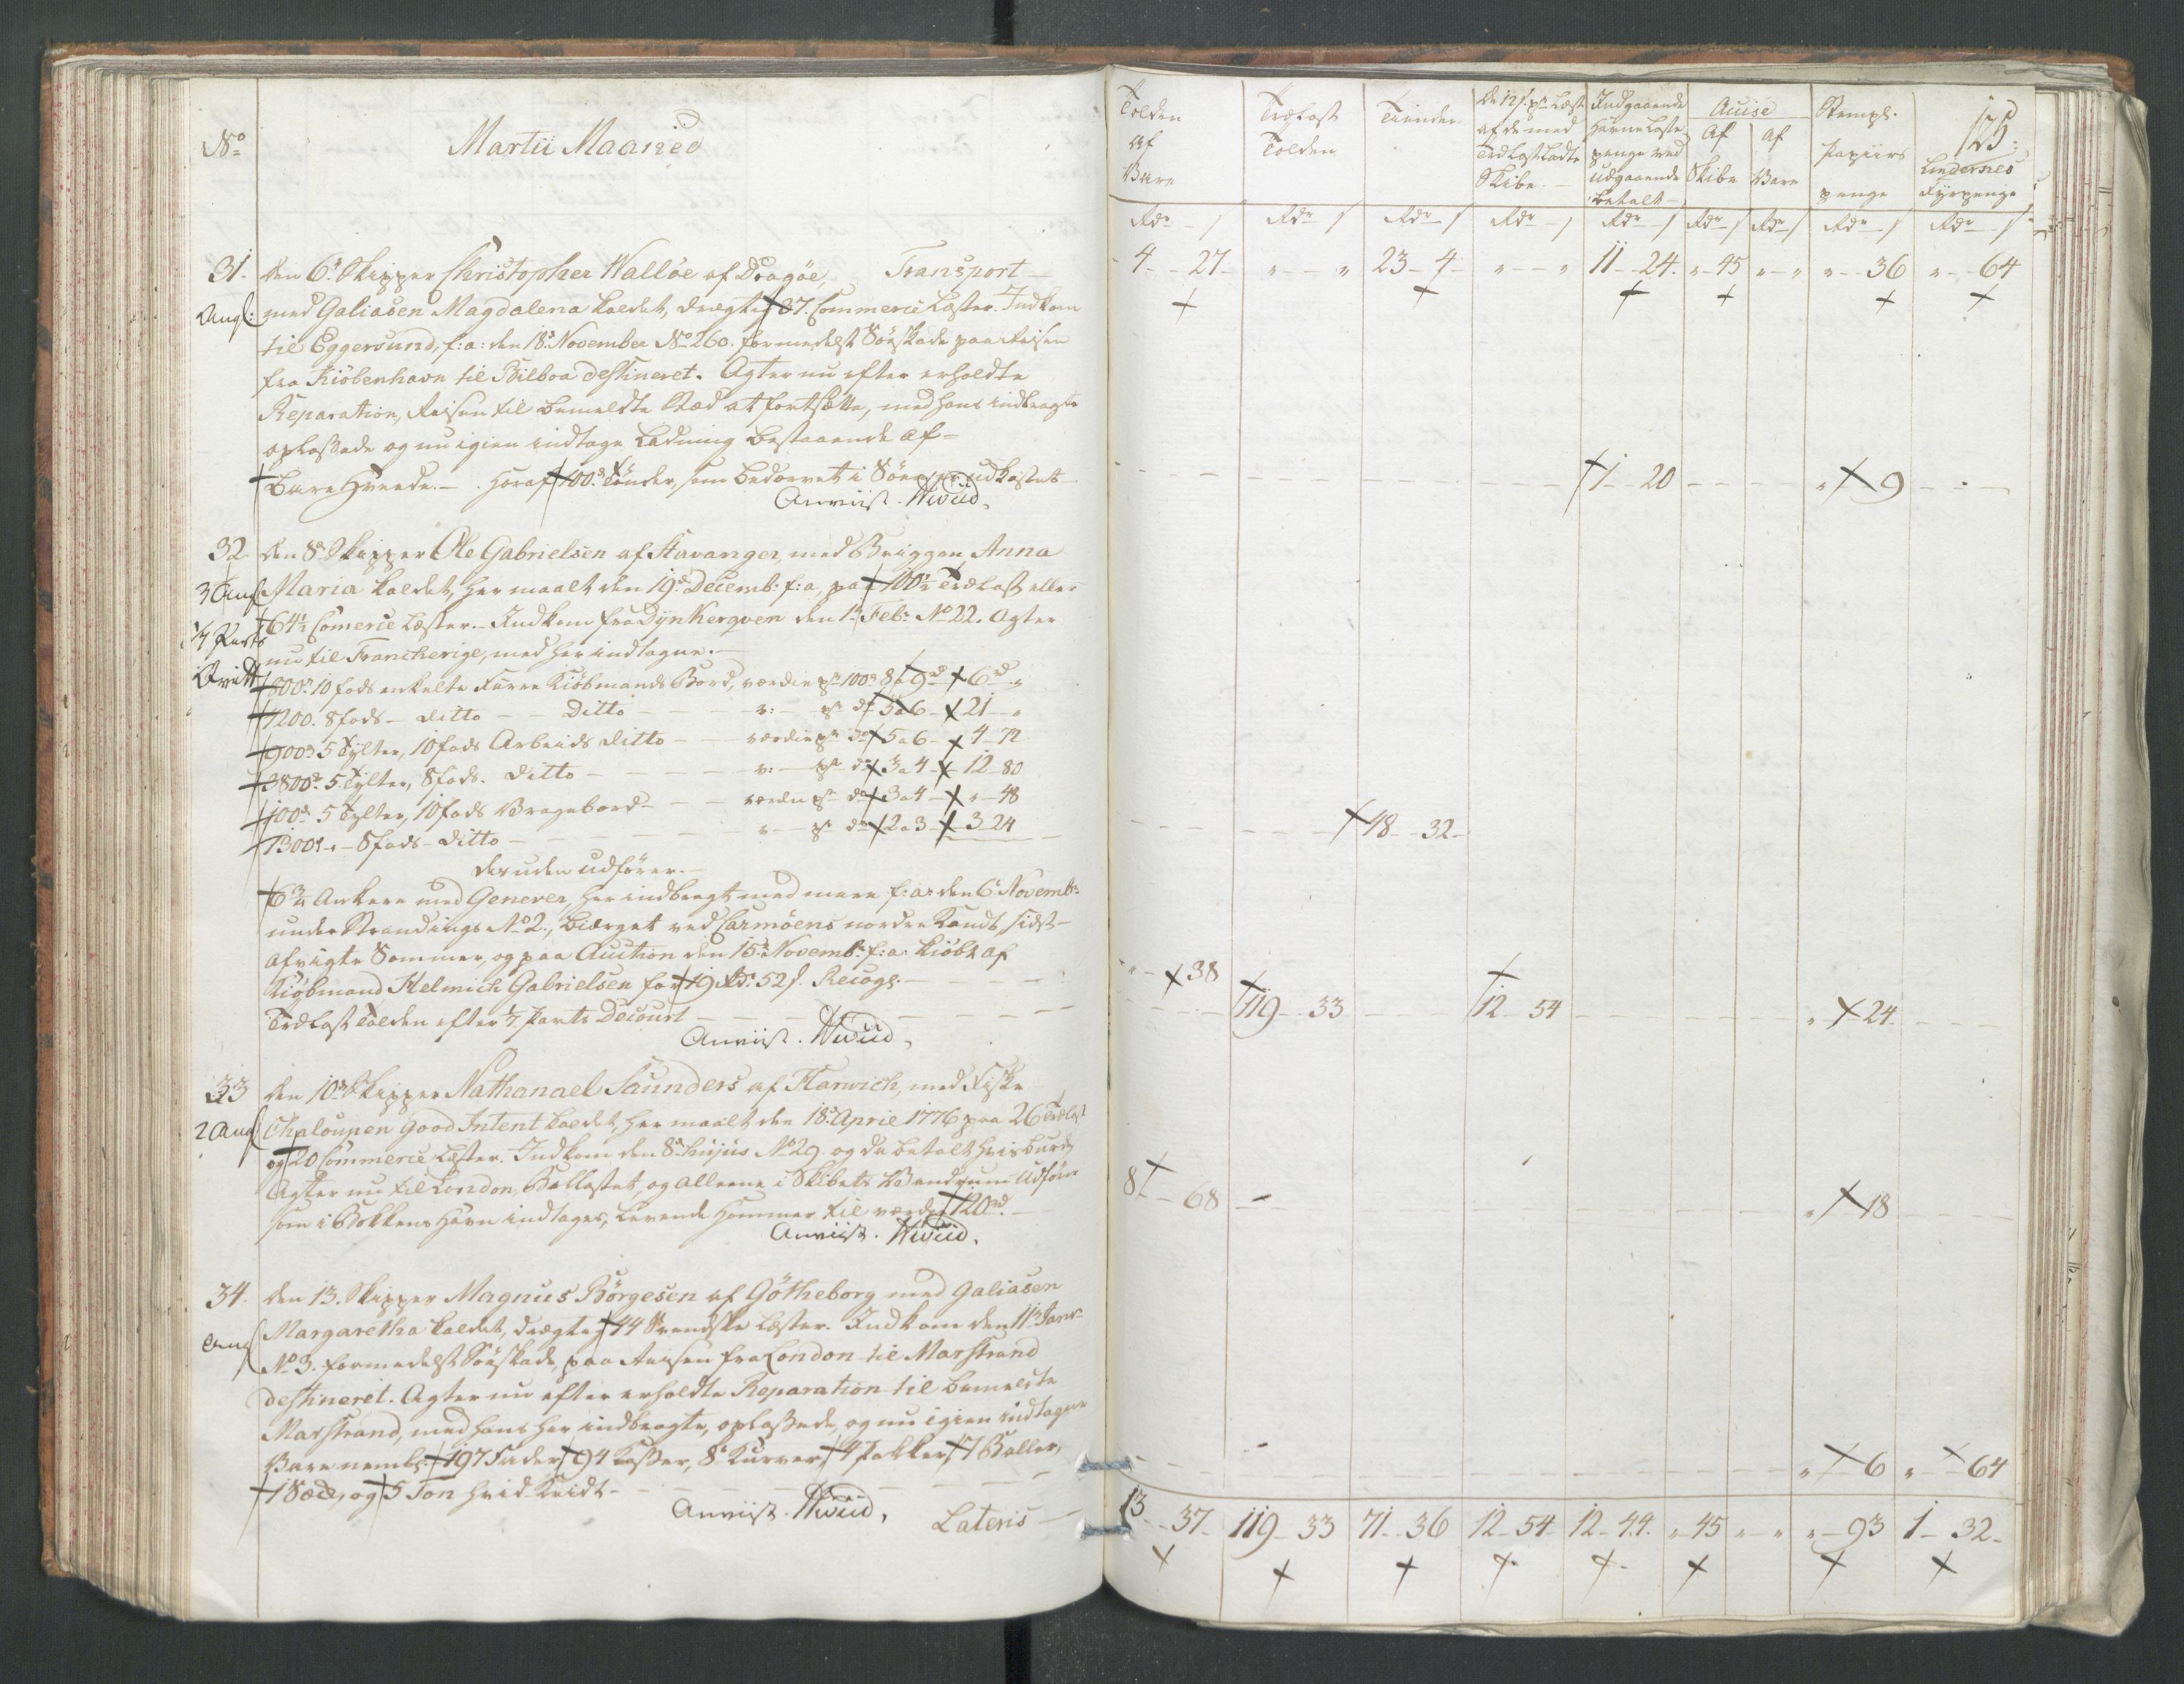 No. Martii Maaned
31. den 6te Skipper Christopher Walløe af Dragøe, Transport
Ang: med Galiasen Magdalena kaldet, drægtig 37. Commerce Læster. Indkom
til Eggersund, f: a: den 18de November No 260. formedelst Søeskade paa Reisen
fra Kiøbenhavn til Bilboa destineret. Agter nu efter erholdte
Reparation, Reisen til bemeldte Stæd at fortsætte, med hans indbragte
oplossede og nu igien indtagne Ladning bestaaende af
Bare Hvede. - Heraf 100de Tønder, som bedærvet i Søen udkastet
Anviist. Hvüd.
32. den 8de Skipper Ole Gabrielsen af Stavanger, med Briggen Anna
3 Ang Maria kaldet, her maalt den 19de Decemb: f: a, paa 100½ Trælast eller
64½ Comerce Læster. Indkom fra Dynkerqven den 1te Feb: No 22. Agter
nu til Franckerige, med her indtagne.
800de 10 fods enkelte Furre Kiøbmands Bord, værdie pr 100de 8 a 9 rd 6 rd „
7200. 8 fods - ditto - - Ditto - v: - pr do 5 a 6 - 21 - „
900de 5 Tylter, 10 fods Arbeids ditto - værdie pr do 5 a 6 - 4 - 72
3800de 5 Tylter, 8 fods. ditto - v: - pr do 3 a 4 - 12 - 80
100de 5 Tylter, 10 fods Vragebord - værdie pr do 3 a 4 - „ - 48
1300de - „ - 8 fods - ditto - „ - pr do 2 a 3 - 3 - 24
desuden udfører.
Ankere med Genever, her indbragt med mere f: a: den 6te Novemb:
under Strandings No 2., biærget ved Carmøens nordre Kandt, sidst-
afvigte Sommer, og paa Auction den 15de Novemb: f: a: kiøbt af
Kiøbmand Helmich Gabrielsen for 19 Rd: 52 s. Recogs.
Trælast Tolden efter 1/7 Parts Decourt
Anviist. Hvüd.
33 den 10de Skipper Nathanael Saunders af Harwich, med Fiske
2 Ang Chaloupen Good Intent kaldet, her maalt den 18de April 1776 paa 26 Trælast
og 20 Commerce Læster. Indkom den 8de hujus No 29. og da betalt hvis burde
Agter nu til London, Ballastet, og alleene i Skibets Vandrum udfører
som i Bokkens Havn indtages, levende Hummer til værdie 120 rd.
Anviist. Hvüd.
34. den 13. Skipper Magnus Börgesen af Götheborg med Galiasen
Ang Margaretha kaldet, drægtig 44 Svendske Læster. Indkom den 11te Janr
No 3. formedelst Søeskade, paa Reisen fra London til Marstrand
destineret. Agter nu efter erholdte Reparation til bemeldte
Marstrand, med hans her indbragte, oplossede, og nu igien indtagne
Vare neml: 197 Fader, 94 Kasser, 8 Kurver, 4 Pakker, 7 Baller,
1 Sæk, og 5 Ton hvid Kridt
Anviist. Hvüd. Lateris
Tolden af Vare
Trælast Tolden
Tiender
De 12 s. pr Læst af de med Trælast ladte Skibe.
Indgaaende Havne Laste penge ved udgaaende betalt
Accise
af Skibe
af Vare
Stempl. papiirs penge
125.
Lindernes Fyrpenge
Rdr s Rdr s Rdr s Rdr s Rdr s Rdr s Rdr s Rdr s Rdr s
4 - 27 „ - „ 23 - 4 „ - „ 11 - 24. „ - 45 „ - „ „ - 36 „ - 64
1 - 20 „ - 9
48 - 32
„ - 38
119 - 33 12 - 54 „ - 24
8 - 68 „ - 18
„ - 6 „ - 64
13 - 37 119 - 33 71 - 36 12 - 54 12 - 44. „ - 45 „ - „ „ - 93 1 - 32